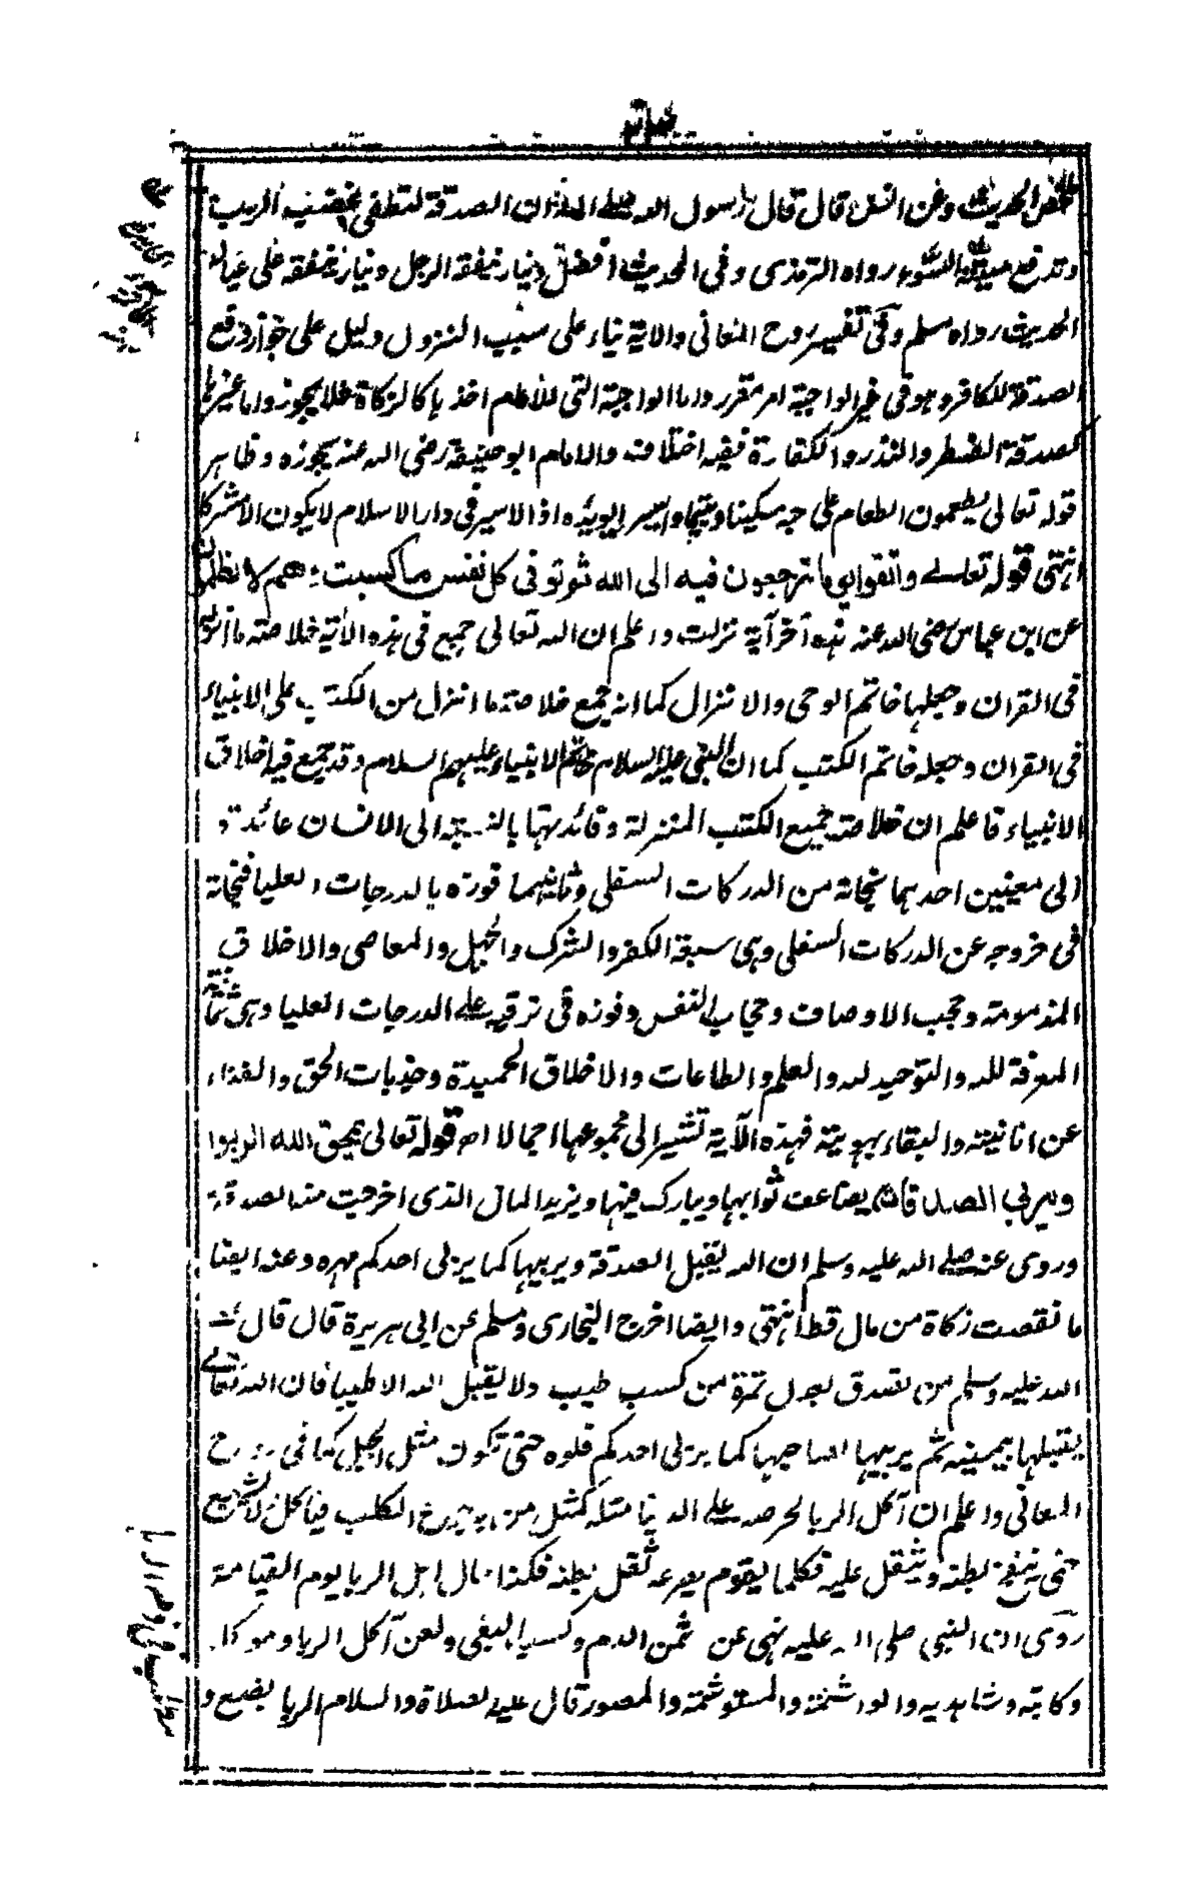 الحديث وعن انس قال قال رسول الله صلے الله ان الصدقة لتطفئ غضب الرب
وتدفع ميتة السوء رواه الترمذى وفى الحديث افضل دينار ينفقه الرجل دينار ينفقه على عياله
الحديث رواه مسلم وفى تفسير روح المعانى والاية بناء على سبب النزول دليل على جواز دفع
الصدقة للكافر وهو فى غير الواجبة امر مقرر واما الواجبة التى للامام اخذها كالزكاة فلا يجوز واما غيرها
كصدقة الفطر والنذر والكفارة ففيه اختلاف والامام ابو حنيفة رضى الله عنه يجوزه وظاهر
قوله تعالى يطعمون الطعام على حبه مسكينا ويتيما واسيرا يويده اذ الاسير فى دار الاسلام لا يكون الا مشركا
انتهى قوله تعالے واتقوا يوما ترجعون فيه الى الله ثم توفى كل نفس ما كسبت وهم لا يظلمون
عن ابن عباس رضى الله عنه هذه آخر آية نزلت واعلم ان الله تعالى جمع فى هذه الآية خلاصة ما انزل
فى القران وجعلها خاتم الوحى والانزال كما انه جمع خلاصة ما انزل من الكتب على الانبياء
فى القران وجعله خاتم الكتب كما ان النبى عليه السلام خاتم الانبياء عليهم السلام وقد جمع فيه اخلاق
الانبياء فاعلم ان خلاصة جميع الكتب المنزلة وفائدتها بالنسبة الى الانسان عائدة
الى معنيين احدهما نجاته من الدركات السفلى وثانيهما فوزه بالدرجات العليا فنجاته
فى خروجه عن الدركات السفلى وهى سبعة الكفر والشرك والجهل والمعاصى والاخلاق
المذمومة وحجب الاوصاف وحجاب النفس وفوزه فى ترقيه علے الدرجات العليا وهى ثمانية
المعرفة لله والتوحيد لله والعلم والطاعات والاخلاق الحميدة وجذبات الحق والفناء
عن انانيته والبقاء بهويته فهذه الآية تشير الى مجموعها اجمالا اھ قوله تعالى يمحق الله الربوا
ويربى الصدقات يضاعف ثوابها ويبارك فيها ويزيد المال الذى اخرجت منه الصدقة
وروى عنه صلے الله عليه وسلم ان الله يقبل الصدقة ويربيها كما يربى احدكم مهره وعنه ايضا
ما نقصت زكاة من مال قط انتهى وايضا اخرج البخارى ومسلم عن ابى هريرة قال قال
الله عليه وسلم من تصدق بعدل تمرة من كسب طيب ولا يقبل الله الا طيبا فان الله تعالے
يقبلها بيمينه ثم يربيها لصاحبها كما يربى احدكم فلوه حتى تكون مثل الجبل كما فى روح
المعانى واعلم ان آكل الربا لحرصه علے الدنيا مثله كمثل من به جوع الكلب فياكل ولا يشبع
حتى ينتفخ بطنه ويثقل عليه فكلما يقوم يصرعه ثقل بطنه فكذا حال اهل الربا يوم القيامة
روى ان النبى صلى الله عليه نهى عن ثمن الدم وكسب البغى ولعن آكل الربا وموكله
وكاتبه وشاهديه والواشمة والمستوشمة والمصور قال عليه الصلاة والسلام الربا بضع و